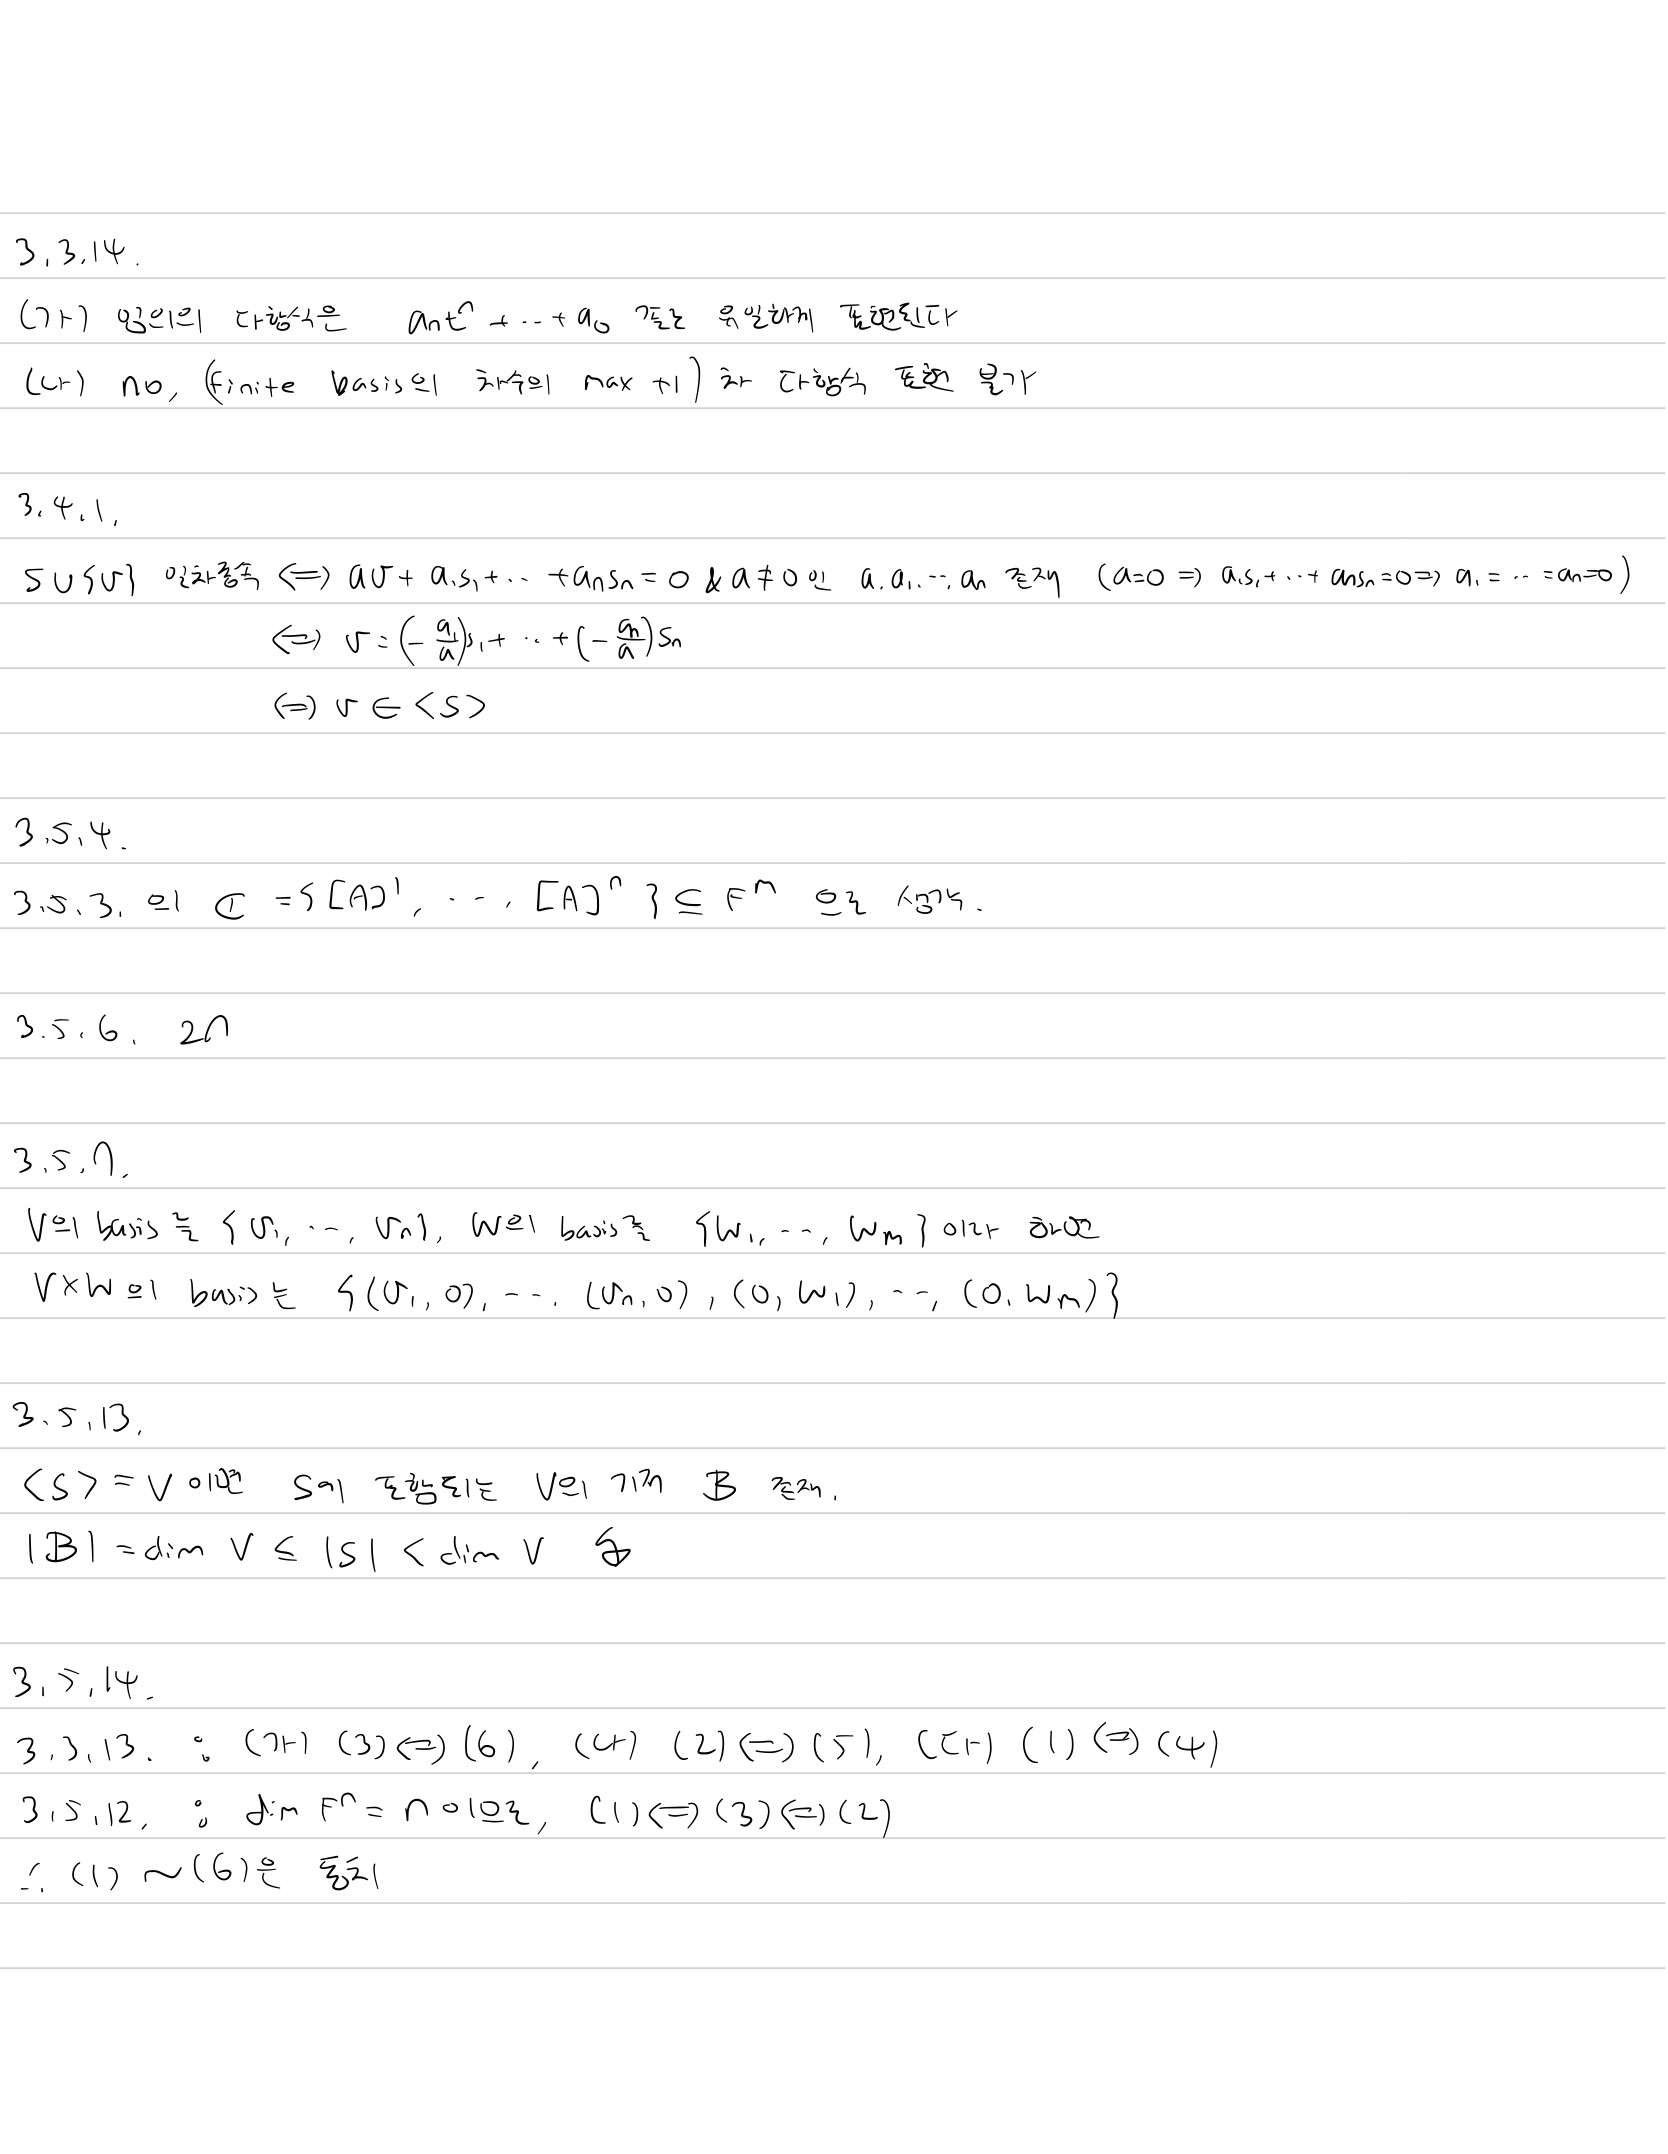 3.3.14.
(가) 임의의 다항식은 aₙtⁿ + ... + a₀ 꼴로 유일하게 표현된다
(나) no, (finite basis의 차수의 max +1) 차 다항식 표현 불가
3.4.1.
S∪{v} 일차종속 ⟺ av + a₁s₁ + ... + aₙsₙ = 0 & a≠0 인 a, a₁, ..., aₙ 존재 (a=0 ⇒ a₁s₁ + ... + aₙsₙ = 0 ⇒ a₁ = ... = aₙ = 0)
⟺ v = (-a₁/a)s₁ + ... + (-aₙ/a)sₙ
⟺ v ∈ <S>
3.5.4.
3.5.3. 의 ℂ = {[A]¹, ..., [A]ⁿ} ⊆ Fᵐ 으로 생각.
3.5.6. 2n
3.5.7.
V의 basis를 {v₁, ..., vₙ}, W의 basis를 {w₁, ..., wₘ} 이라 하면
V×W의 basis는 {(v₁, 0), ..., (vₙ, 0), (0, w₁), ..., (0, wₘ)}
3.5.13.
<S> = V 이면 S에 포함되는 V의 기저 B 존재.
|B| = dim V ≤ |S| < dim V ↯
3.5.14.
3.3.13. : (가) (3)⟺(6), (나) (2)⟺(5), (다) (1)⟺(4)
3.5.12. : dim Fⁿ = n 이므로, (1)⟺(3)⟺(2)
∴ (1) ~ (6)은 동치